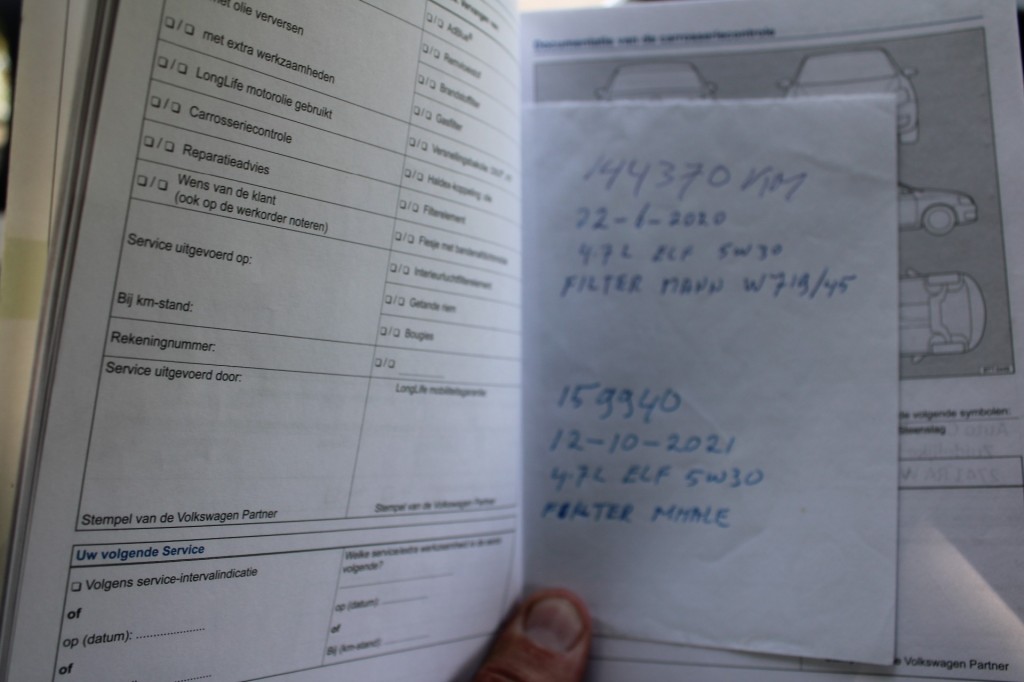 met olie verversen
❏/❏ met extra werkzaamheden
❏/❏ LongLife motorolie gebruikt
❏/❏ Carrosseriecontrole
❏/❏ Reparatieadvies
❏/❏ Wens van de klant
(ook op de werkorder noteren)
Service uitgevoerd op:
Bij km-stand:
Rekeningnummer:
Service uitgevoerd door:
Stempel van de Volkswagen Partner
❏/❏ AdBlue®
❏/❏ Remvloeistof
❏/❏ Brandstoffilter
❏/❏ Gasfilter
❏/❏ Haldex-koppeling, olie
❏/❏ Filterelement
❏/❏ Flesje met bandenafdichtmiddel
❏/❏ Interieurluchtfilterelement
❏/❏ Getande riem
❏/❏ Bougies
❏/❏
LongLife mobiliteitsgarantie
Stempel van de Volkswagen Partner
Uw volgende Service
❏ Volgens service-intervalindicatie
of
op (datum): ....................
of
Welke service/extra werkzaamheid is de
volgende?
op (datum):
of
Bij (km-stand):
Documentatie van de carrosseriecontrole
144370 KM
22-6-2020
4.7 L ELF 5W30
FILTER MANN W719/45
159940
12-10-2021
4.7 L ELF 5W30
FILTER MHALE
de volgende symbolen:
Steenslag
e Volkswagen Partner